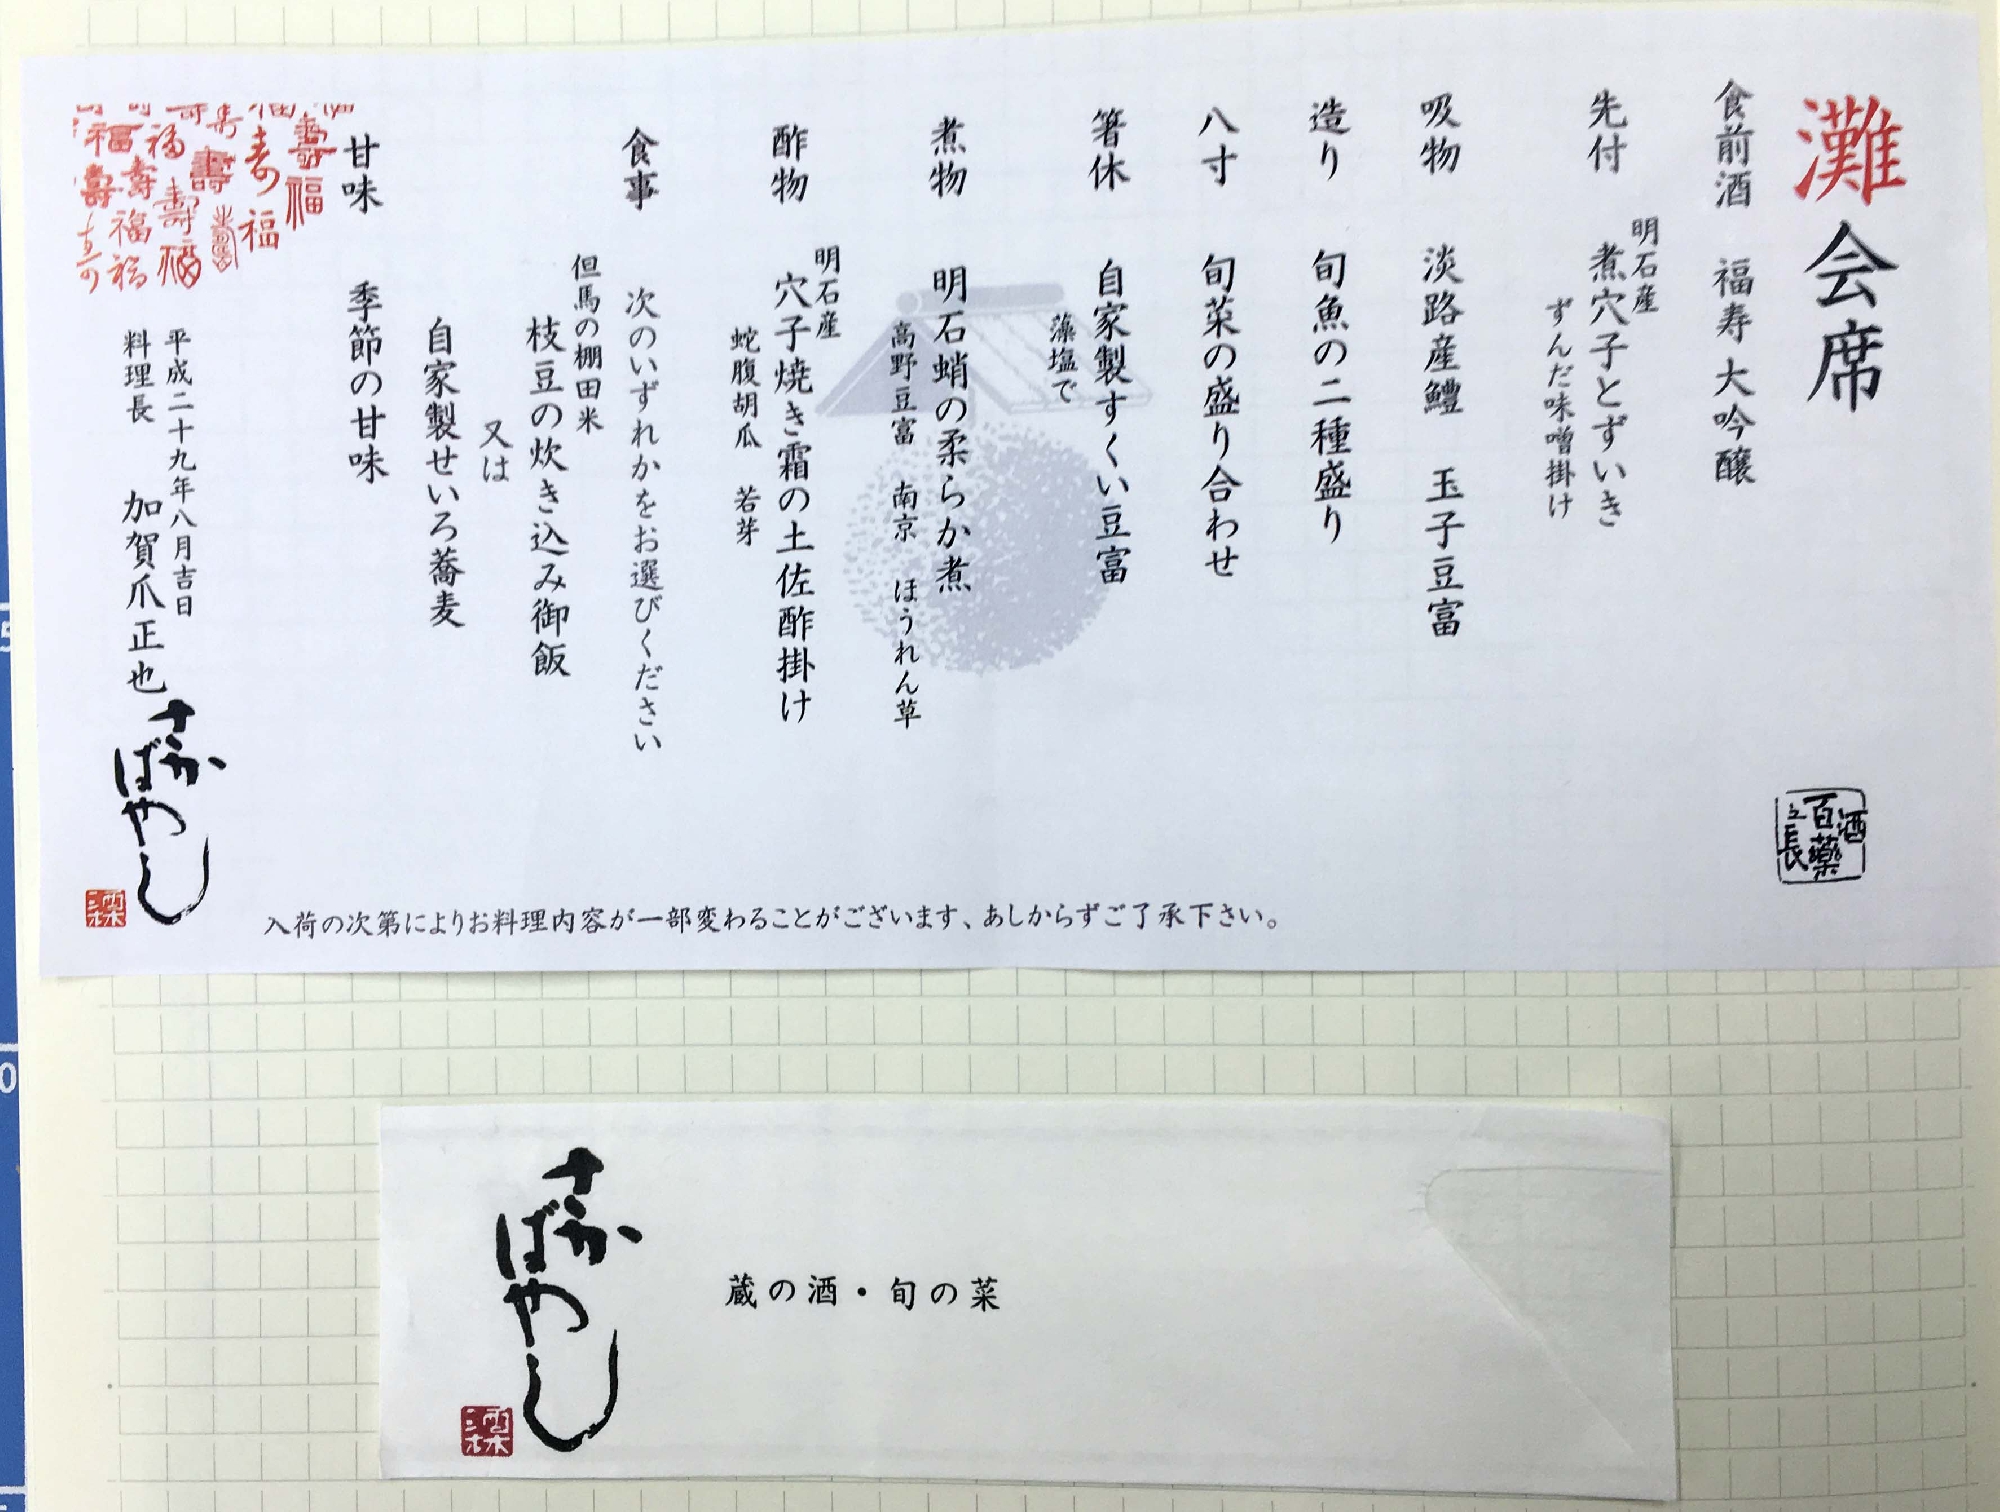 灘会席
食前酒　福寿 大吟醸
先付　明石産
煮穴子とずいき
ずんだ味噌掛け
吸物　淡路産鱧　玉子豆富
造り　旬魚の二種盛り
八寸　旬菜の盛り合わせ
箸休　自家製すくい豆富
藻塩で
煮物　明石蛸の柔らか煮
高野豆富　南京　ほうれん草
酢物　明石産
穴子焼き霜の土佐酢掛け
蛇腹胡瓜　若芽
食事　次のいずれかをお選びください
但馬の棚田米
枝豆の炊き込み御飯
又は
自家製せいろ蕎麦
甘味　季節の甘味
平成二十九年八月吉日
料理長　加賀爪正也
さかばやし
酒百薬之長
入荷の次第によりお料理内容が一部変わることがございます、あしからずご了承下さい。
さかばやし
蔵の酒・旬の菜